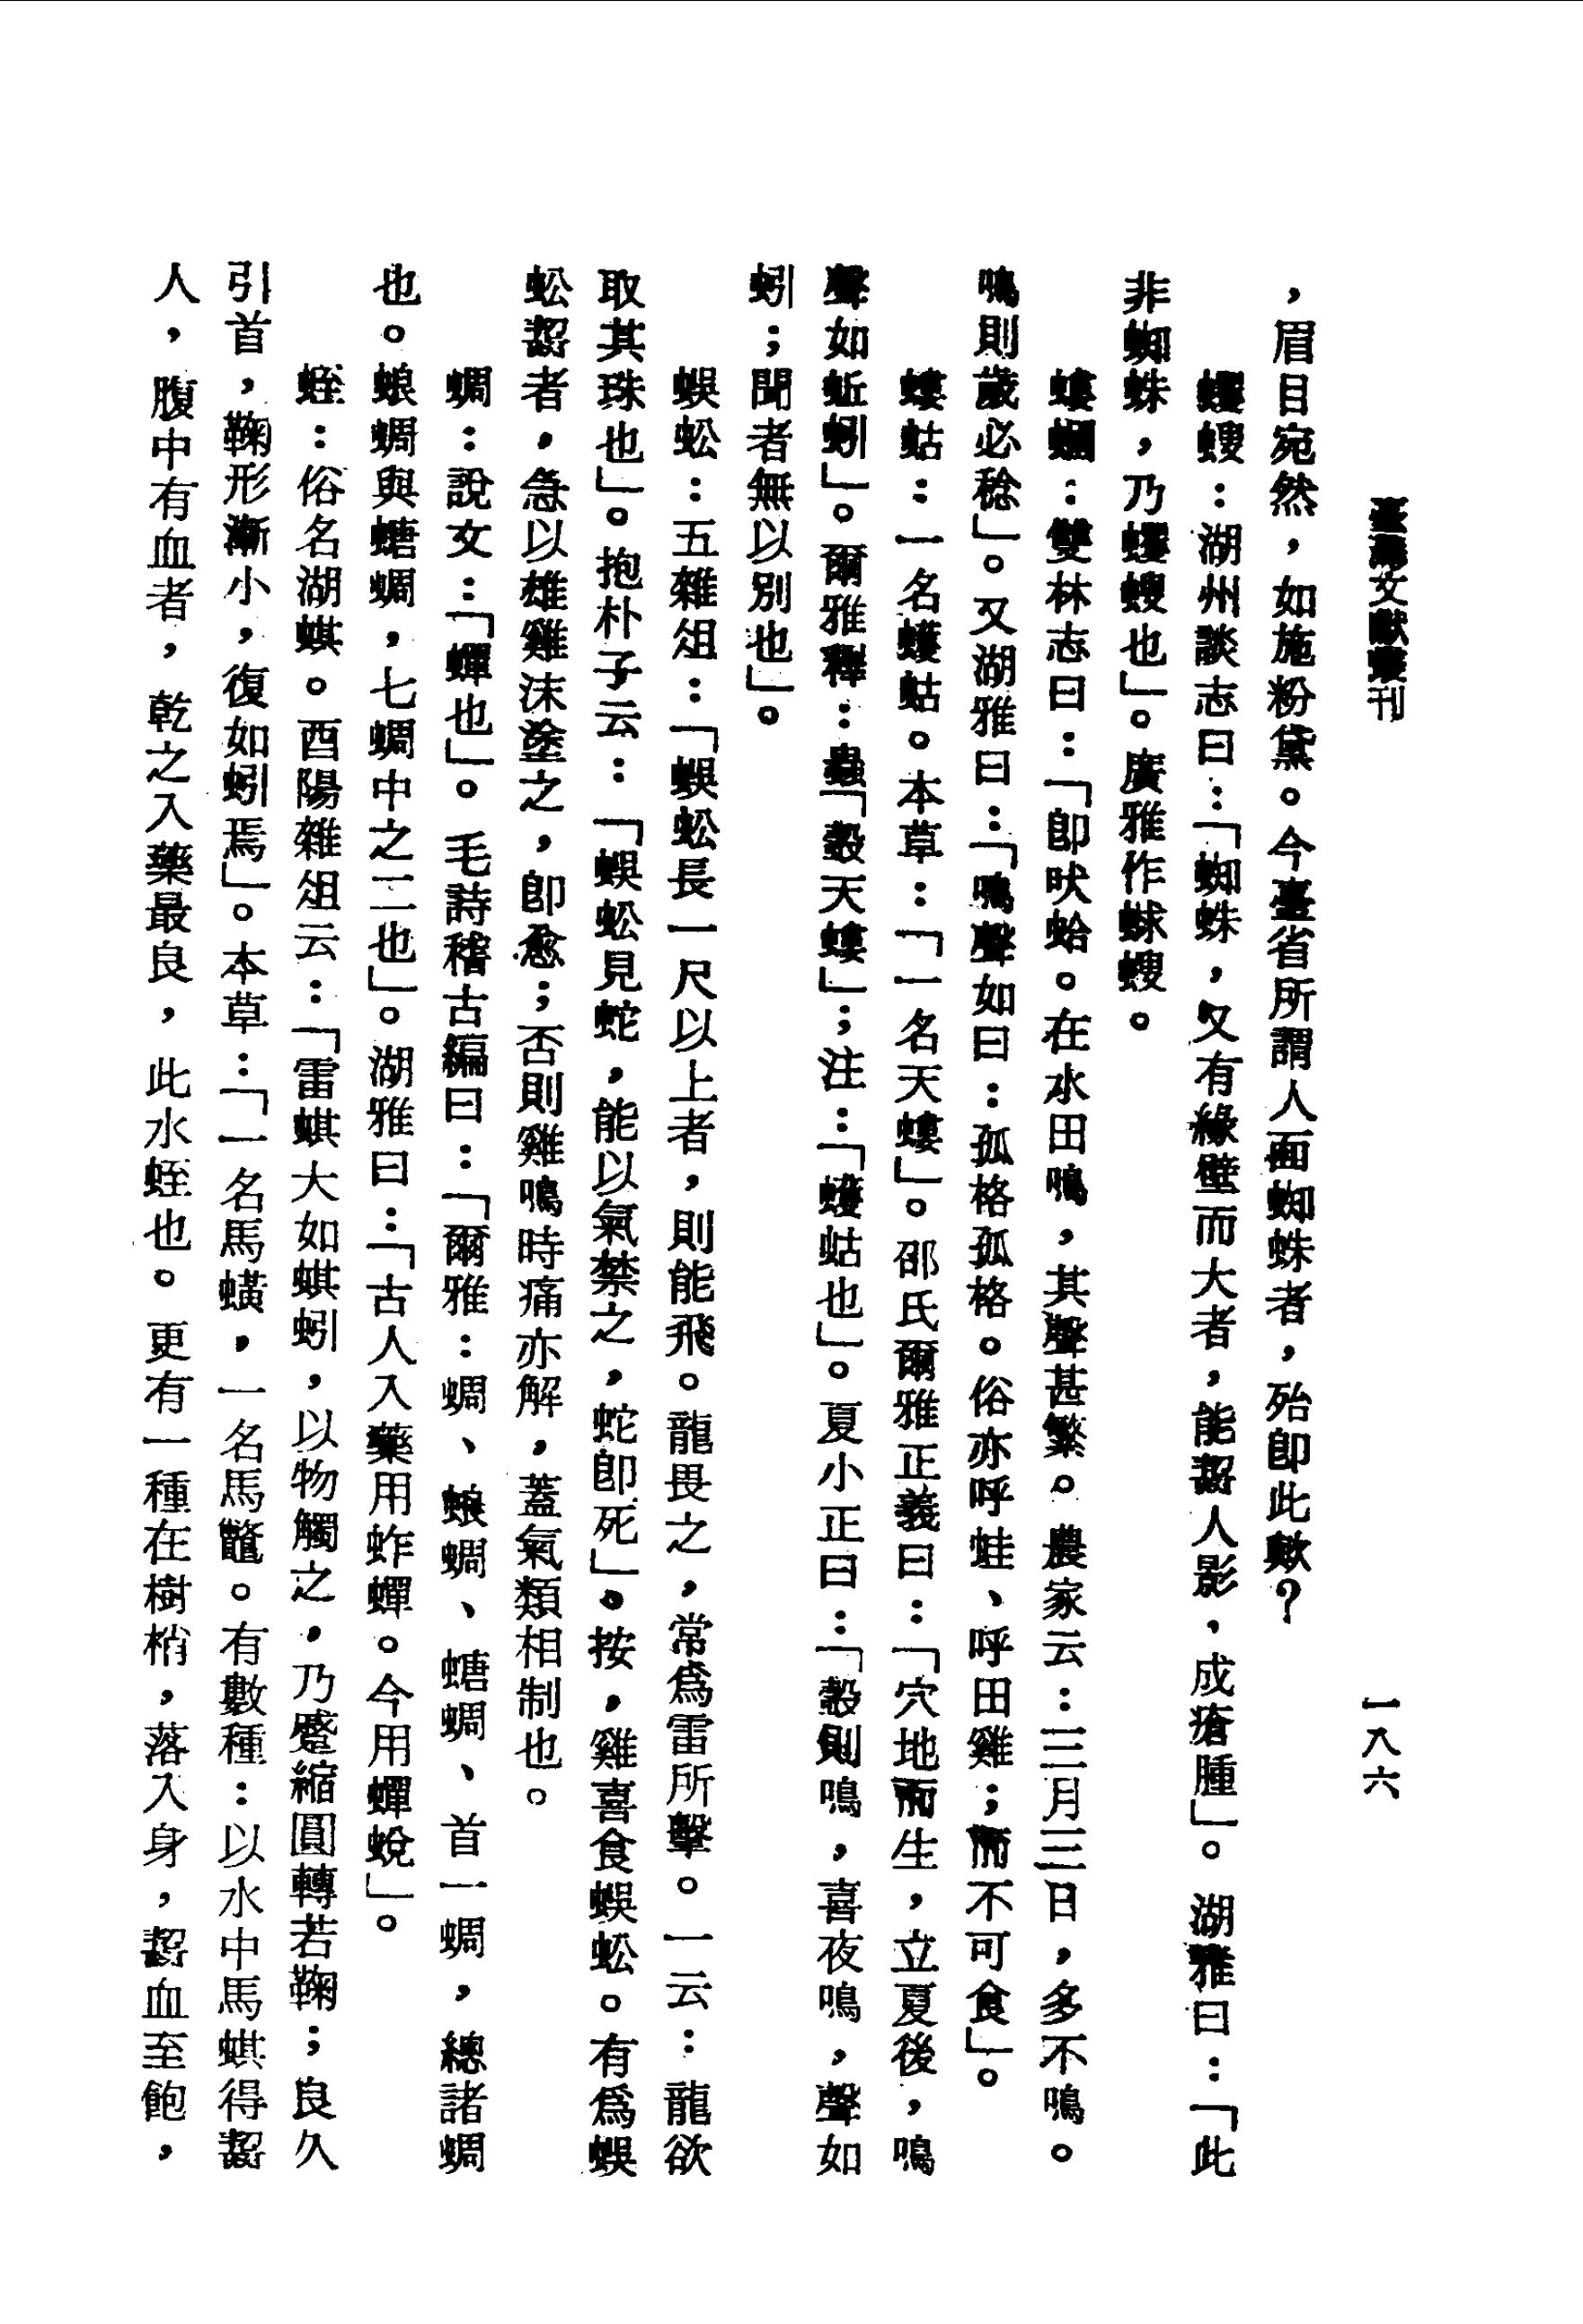 臺灣文獻叢刊
一八六
，眉目宛然，如施粉黛。今臺省所謂人面蜘蛛者，殆卽此歟？
蠼螋：湖州談志曰：「蜘蛛，又有緣壁而大者，能齧人影，成瘡腫」。湖雅曰：「此
非蜘蛛，乃蠼螋也」。廣雅作蛷螋。
螻蟈：雙林志曰：「卽吠蛤。在水田鳴，其聲甚繁。農家云：三月三日，多不鳴。
鳴則歲必稔」。又湖雅曰：「鳴聲如曰：孤格孤格。俗亦呼蛙、呼田雞；而不可食」。
螻蛄：一名蠖蛄。本草：「一名天螻」。邵氏爾雅正義曰：「穴地而生，立夏後，鳴
聲如蚯蚓」。爾雅釋：蟲「縠天螻」；注：「蠖蛄也」。夏小正曰：「縠則鳴，喜夜鳴，聲如
蚓；聞者無以別也」。
蜈蚣：五雜俎：「蜈蚣長一尺以上者，則能飛。龍畏之，常爲雷所擊。一云：龍欲
取其珠也」。抱朴子云：「蜈蚣見蛇，能以氣禁之，蛇卽死」。按，雞喜食蜈蚣。有爲蜈
蚣齧者，急以雄雞沫塗之，卽愈；否則雞鳴時痛亦解，蓋氣類相制也。
蜩：說文：「蟬也」。毛詩稽古編曰：「爾雅：蜩、蜋蜩、螗蜩、首一蜩，總諸蜩
也。蜋蜩與螗蜩，七蜩中之二也」。湖雅曰：「古人入藥用蚱蟬。今用蟬蛻」。
蛭：俗名湖蜞。酉陽雜俎云：「雷蜞大如蜞蚓，以物觸之，乃蹙縮圓轉若鞠；良久
引首，鞠形漸小，復如蚓焉」。本草：「一名馬蟥，一名馬鼈。有數種：以水中馬蜞得齧
人，腹中有血者，乾之入藥最良，此水蛭也。更有一種在樹梢，落入身，齧血至飽，